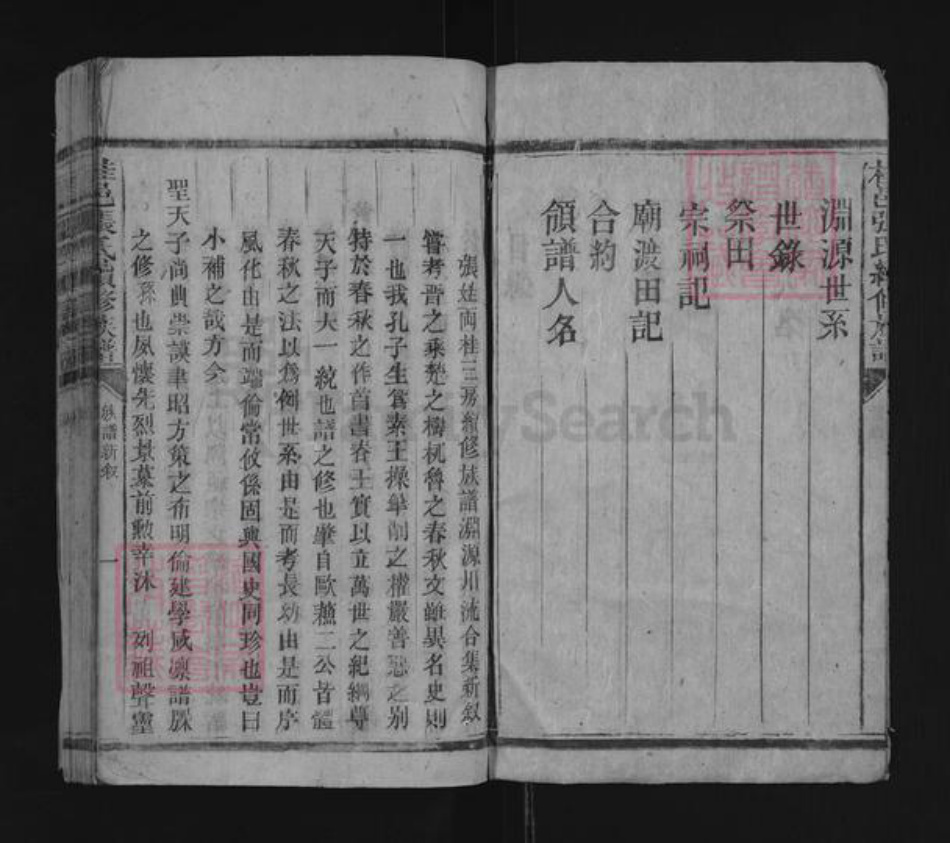 淵源世系
世錄
祭田
宗祠記
廟渡田記
合約
領譜人名
張姓両桂三房續修族譜淵源川流合集新叙
嘗考晉之乘楚之檮杌魯之春秋文雖異名史則
一也我孔子生爲素王操筆削之權嚴善惡之别
特於春秋之作首書春王實以立萬世之紀綱尊
天子而大一統也譜之修也肇自歐蘓二公昔體
春秋之法以爲例世系由是而考長幼由是而序
風化由是而端倫常攸係固與國史同珍也豈曰
小補之哉方今
聖天子尚典崇謨聿昭方策之布明倫建學咸凛譜牒
之修孫也夙懷先烈景慕前勲幸沐 列祖聲靈
張氏續修族譜
族譜新叙
一
FamilySearch